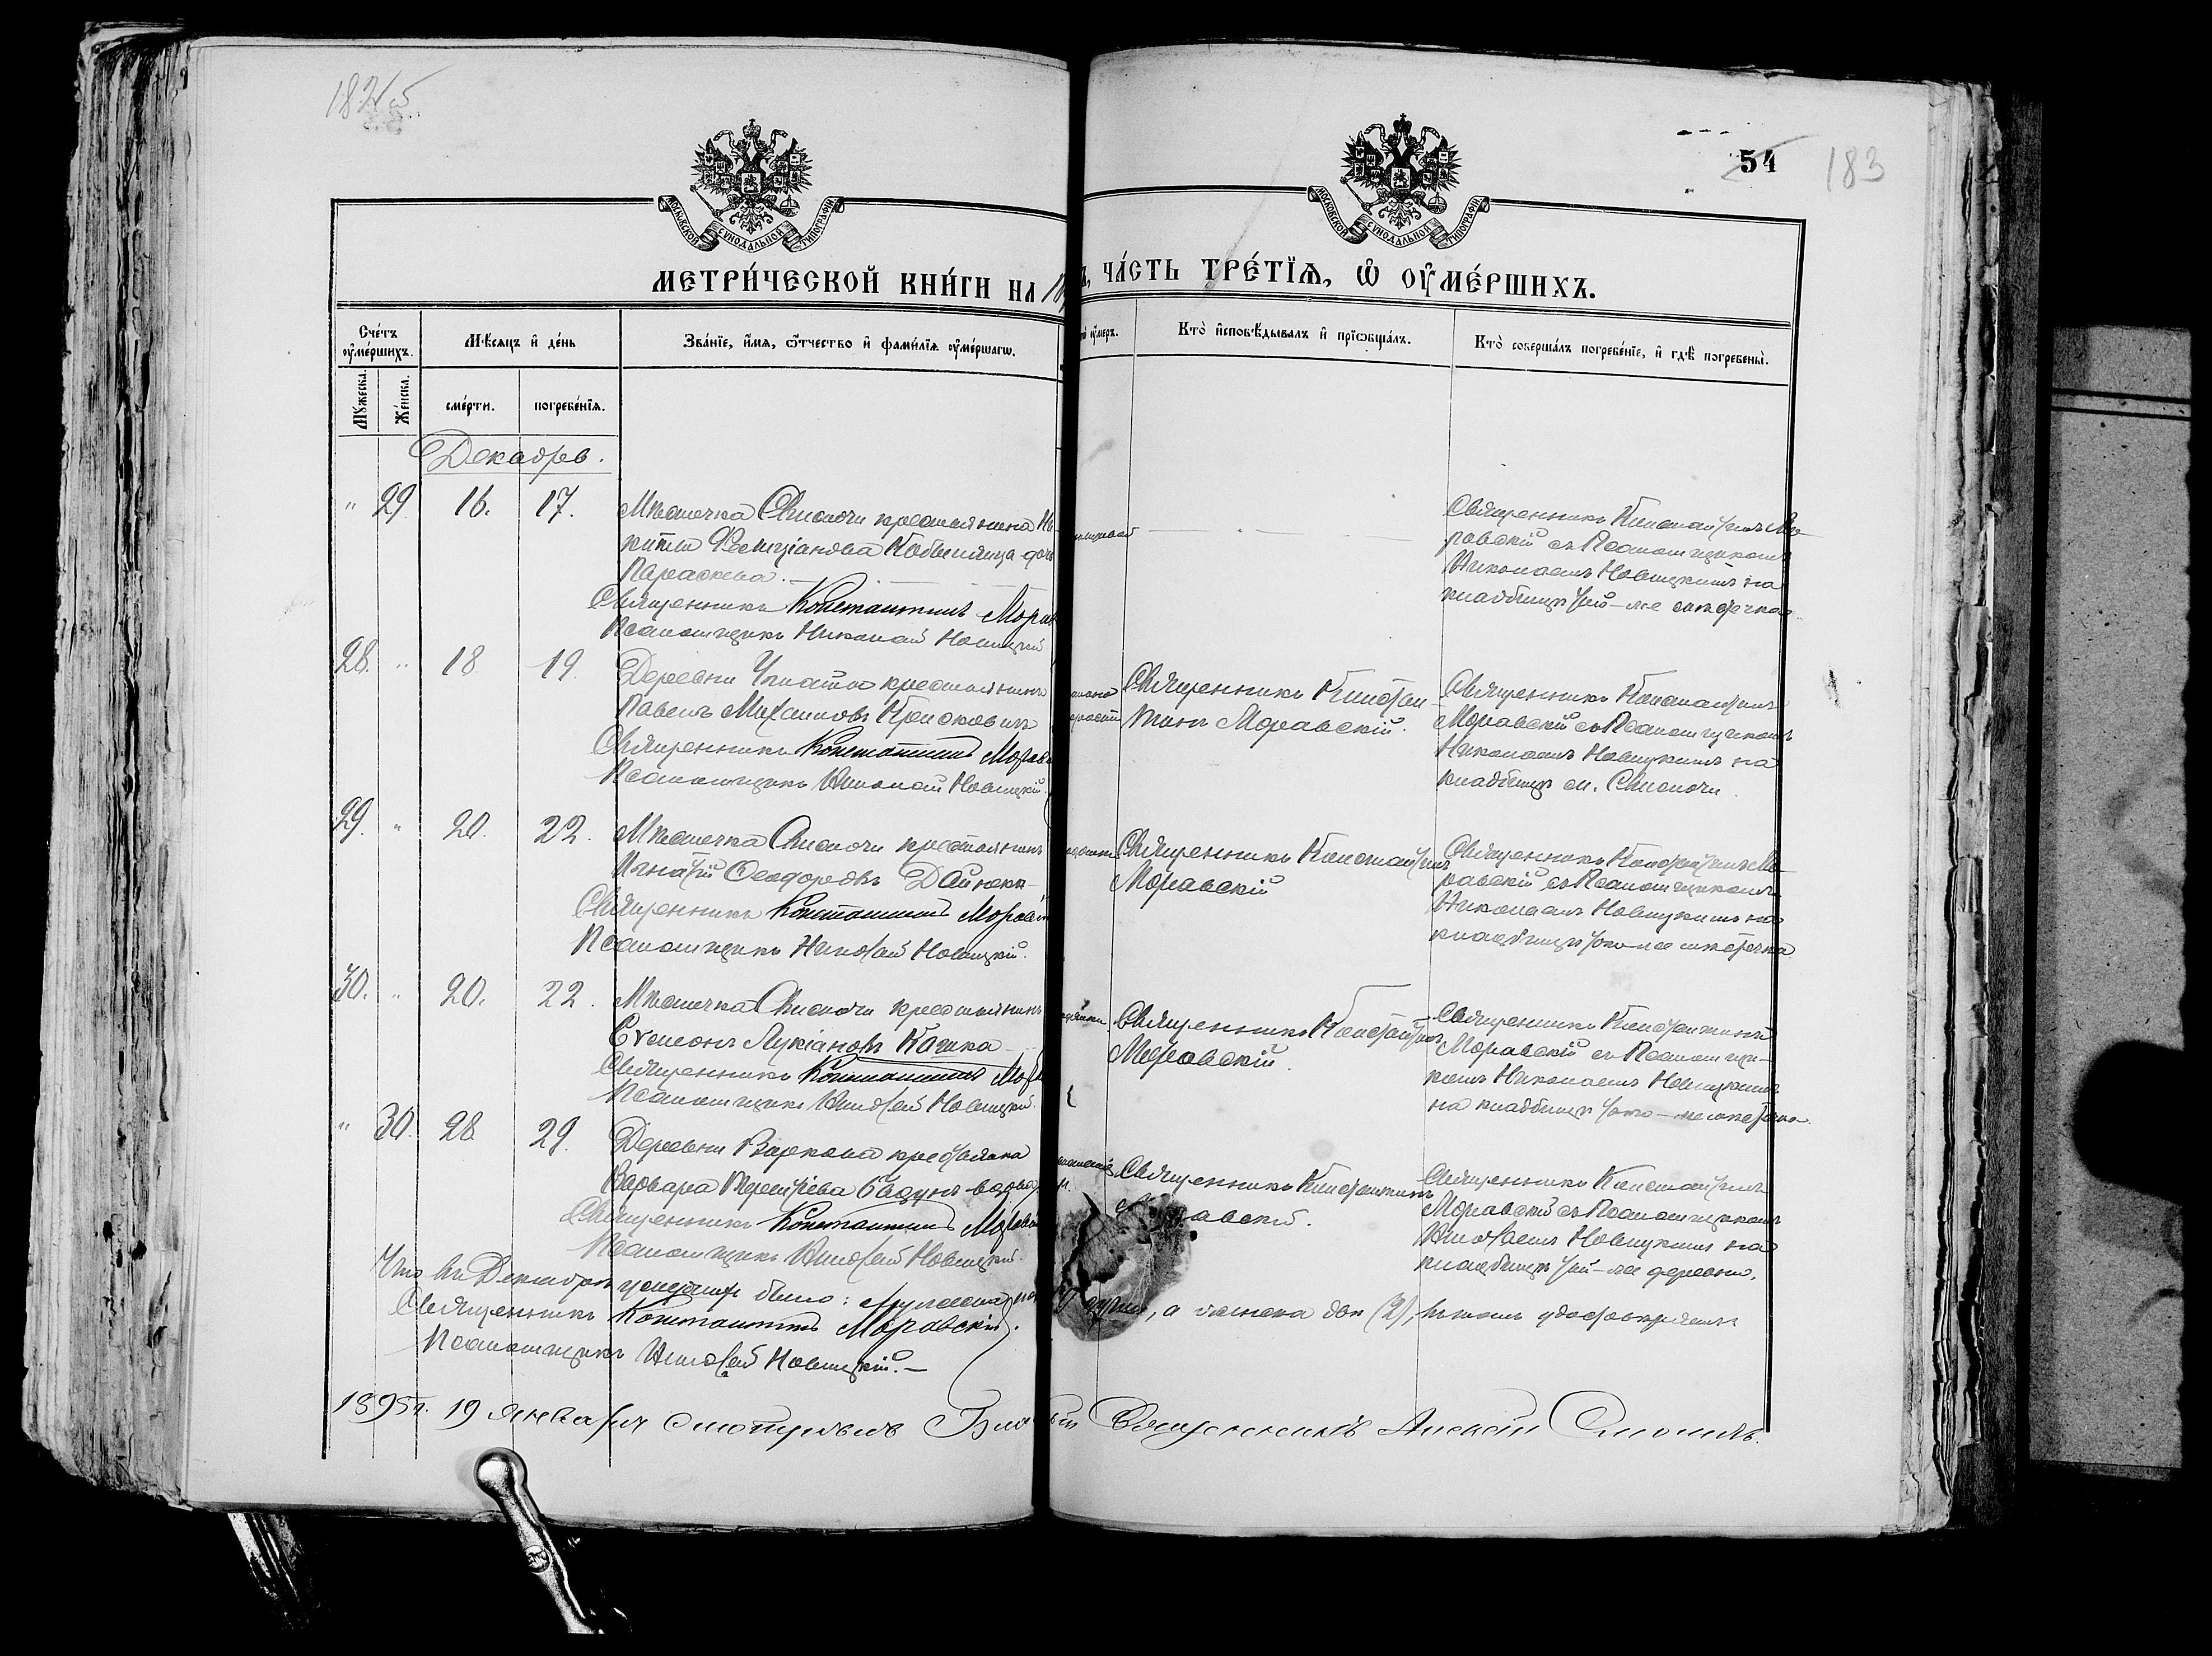 54
183
МОСКОВСКОЙ СѴНОДАЛЬНОЙ ТИПОГРАФІИ
МОСКОВСКОЙ СѴНОДАЛЬНОЙ ТИПОГРАФІИ
МЕТРИ́ЧЕСКОЙ КНИ́ГИ НА
ЧА́СТЬ ТРЕ́ТЇѦ, Ѿ ОУ҆МЕ́РШИХЪ.
Сче́тъ оу҆ме́ршихъ.
Мѣ́сяцъ и҆ де́нь
Зва́нїе, и҆́мѧ, ѻ҆́тчество и҆ фами́лїѧ оу҆ме́ршагѡ.
Кто̀ и҆сповѣ́дывалъ и҆ прїѡбща́лъ.
Кто̀ соверша́лъ погребе́нїе, и҆ гдѣ̀ погребены̀.
Мꙋ́жеска.
Же́нска.
сме́рти.
погребе́нїѧ.
Декабрь.
" 29 16. 17.
Мѣстечка Свислочи крестьянина Ни-
киты дочь
Параскева.
Священникъ Константинъ
Псаломщикъ Николай Новицкій
Священникъ Константинъ Мо-
равскій съ Псаломщикомъ
Николаемъ Новицкимъ на
кладбищѣ той-же мѣстечка
28. " 18 19.
Деревни крестьянинъ
Павелъ Михаиловъ
Священникъ Константинъ
Псаломщикъ Николай Новицкій
Священникъ Констан-
тинъ Моравскій.
Священникъ Константинъ
Моравскій съ Псаломщикомъ
Николаемъ Новицкимъ на
кладбищѣ м. Свислочи
29. " 20. 22.
Мѣстечка Свислочи крестьянинъ
Игнатій Ѳеодоровъ Дайнека
Священникъ Константинъ
Псаломщикъ Николай Новицкій.
Священникъ Константинъ
Моравскій
Священникъ Константинъ Мо-
равскій съ Псаломщикомъ
Николаемъ Новицкимъ на
кладбищѣ того-же мѣстечка
30. " 20. 22.
Мѣстечка Свислочи крестьянинъ
Сѵмеонъ Лукіановъ Кошка
Священникъ Константинъ
Псаломщикъ Николай Новицкій.
Священникъ Константинъ
Моравскій.
Священникъ Константинъ
Моравскій съ Псаломщи-
комъ Николаемъ Новицкимъ
на кладбищѣ того-же мѣстечка
" 30. 28 29.
Деревни крестьянка
Варвара вдова
Священникъ Константинъ
Псаломщикъ Николай Новицкій.
Священникъ Константинъ
Священникъ Константинъ
Моравскій съ Псаломщикомъ
Николаемъ Новицкимъ на
кладбищѣ той-же деревни.
Что въ Декабрѣ умершихъ было: мужеска , а женска двѣ (2), въ томъ удостовѣряемъ
Священникъ Константинъ Моравскій.
Псаломщикъ Николай Новицкій.
1895 г. 19 Января смотрѣлъ Священникъ Алексій